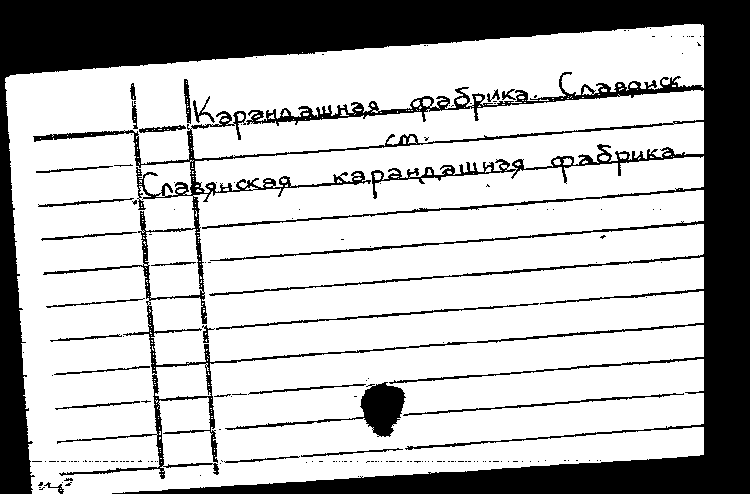 Карандашная фабрика. Славянск
см.
Славянская карандашная фабрика.